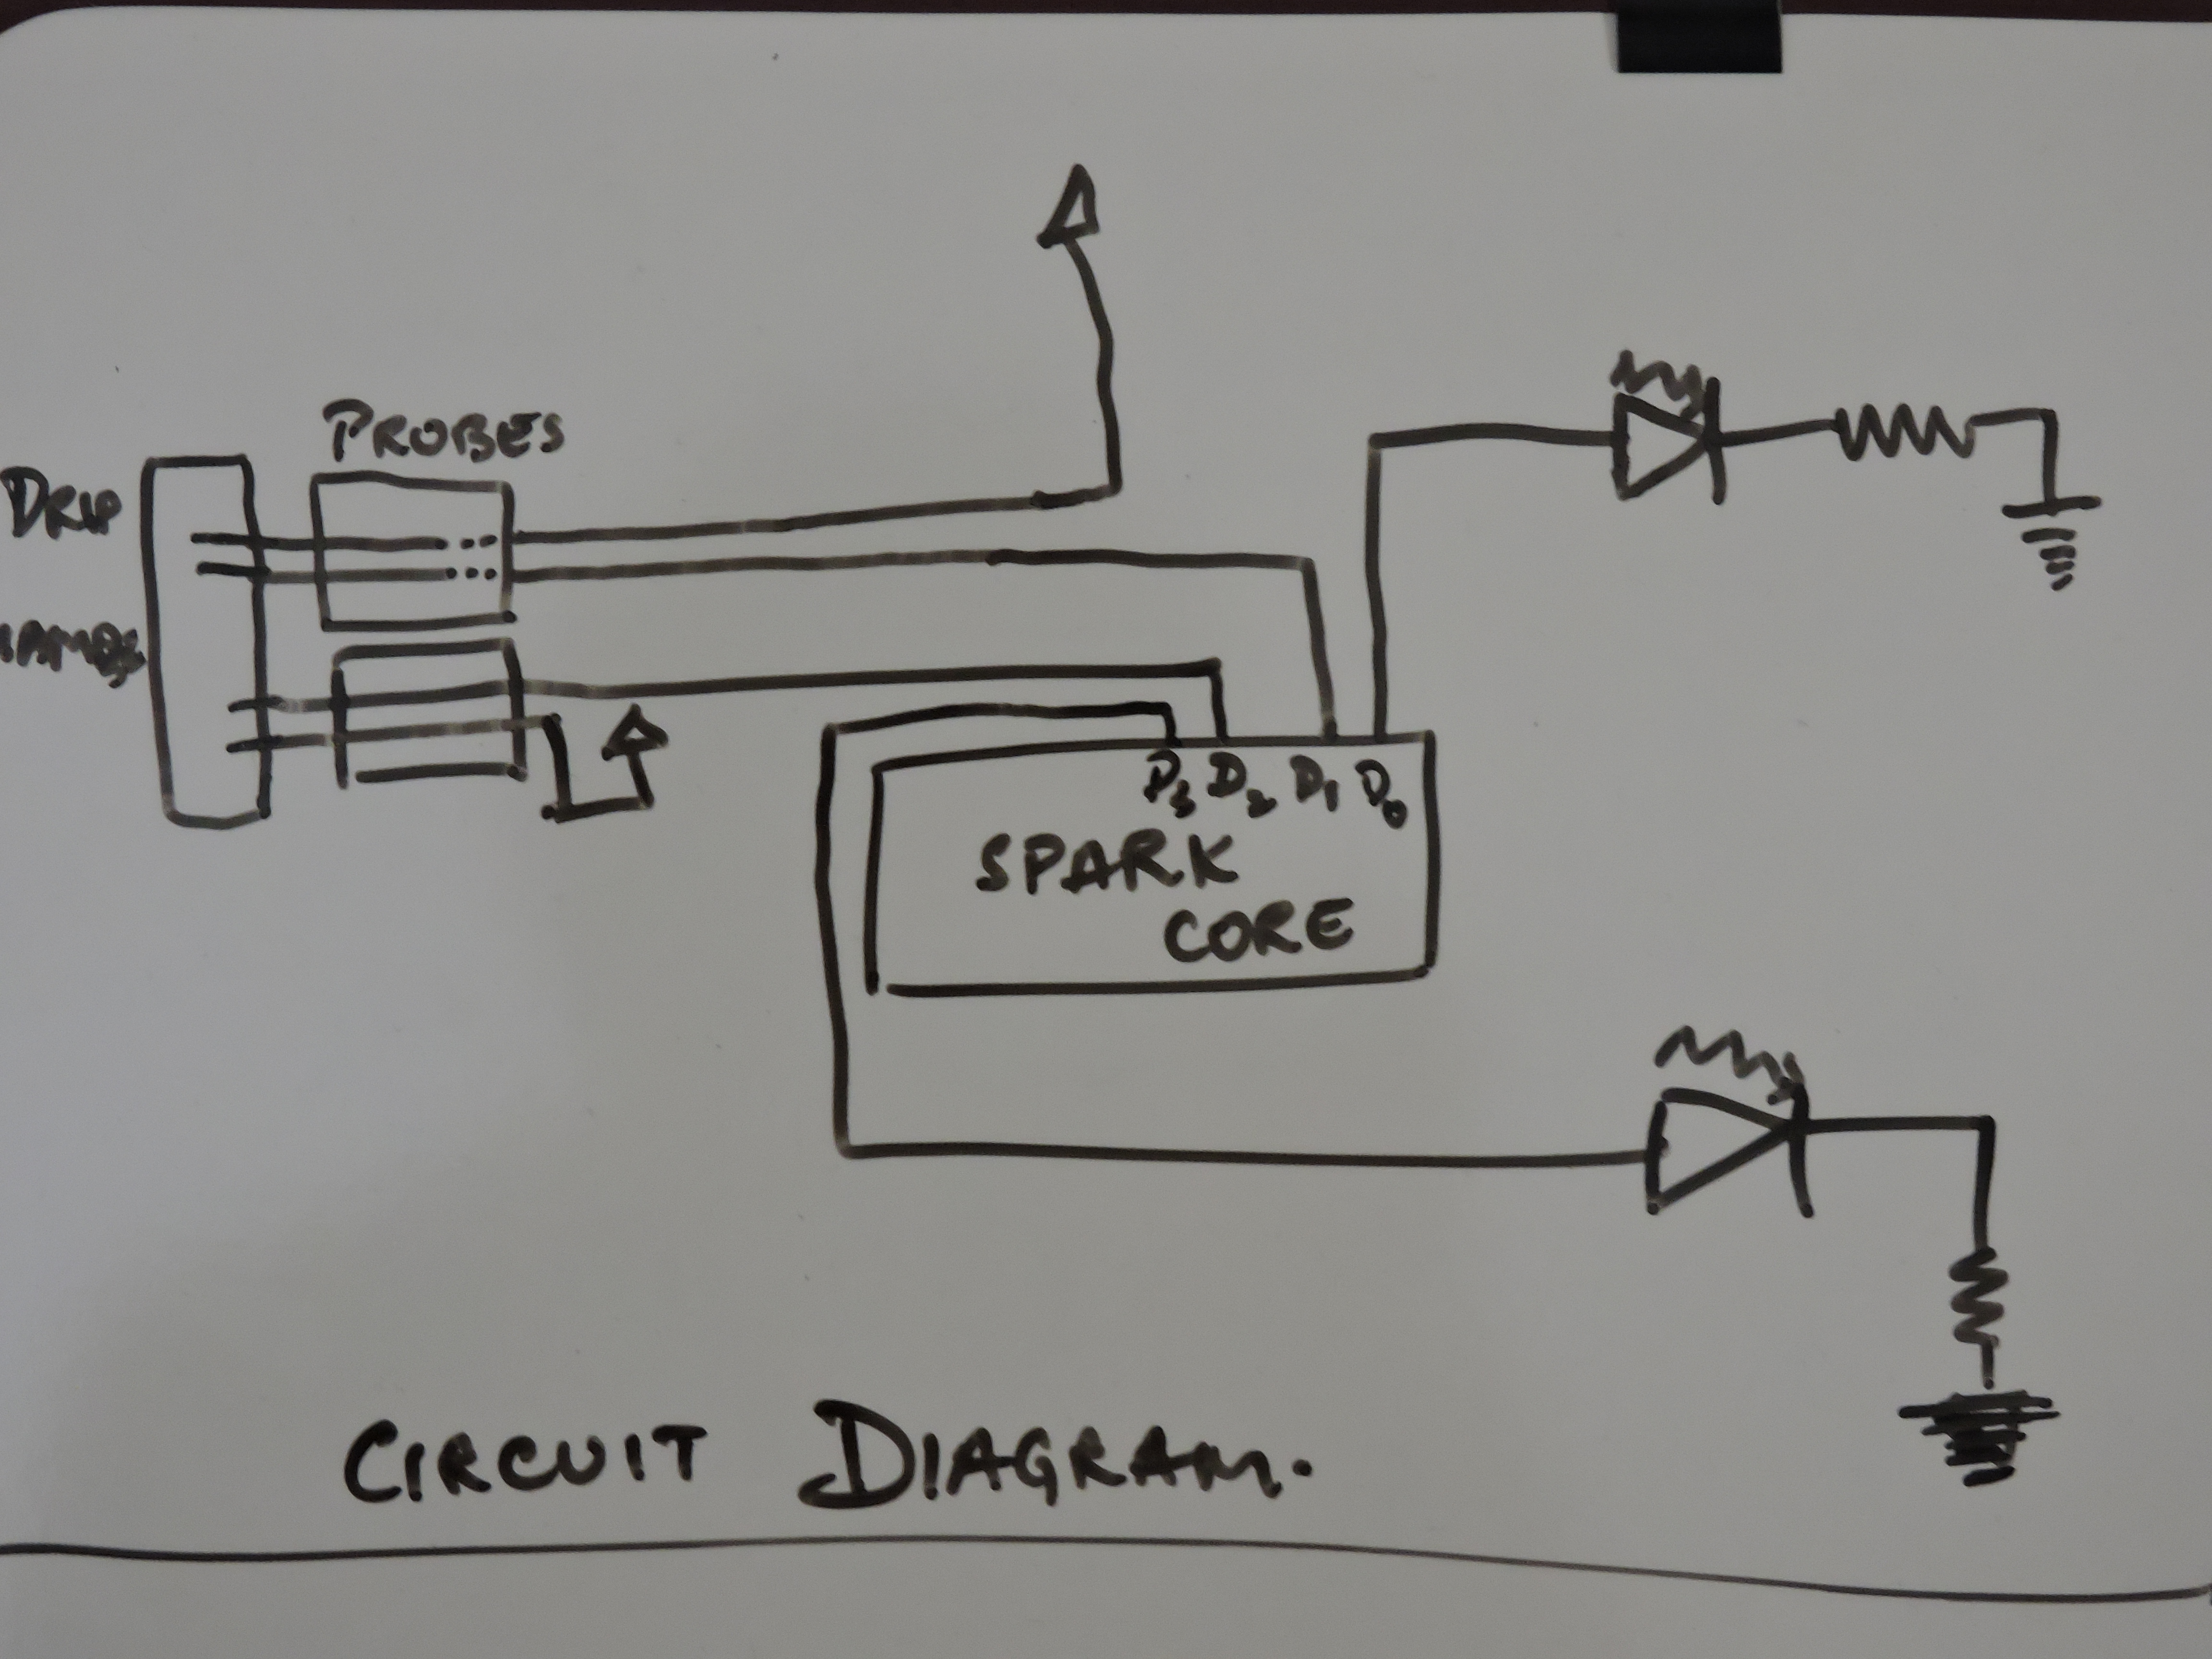 PROBES
DRIP
D3 D2 D1 D0
SPARK
CORE
CIRCUIT DIAGRAM.